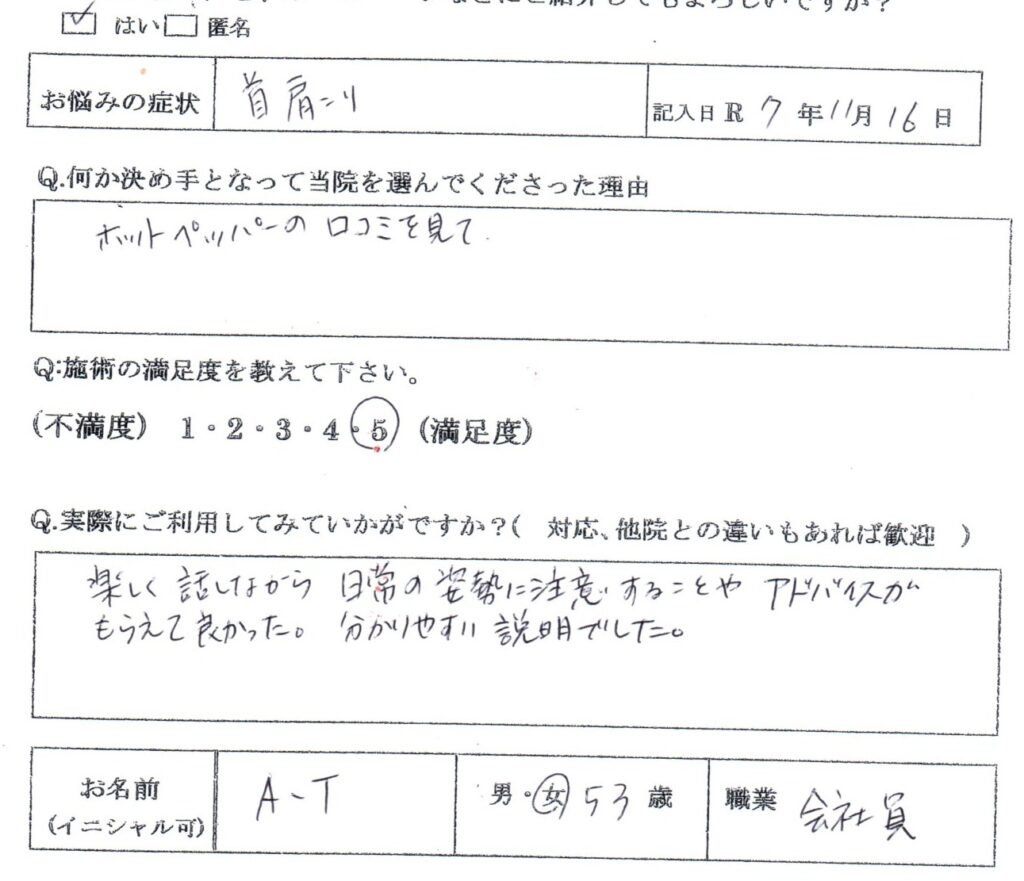 などにご紹介してもよろしいですか？
はい 匿名
お悩みの症状 首肩コリ 記入日 R 7 年 11月 16 日
Q.何か決め手となって当院を選んでくださった理由
ホットペッパーの口コミを見て
Q:施術の満足度を教えて下さい。
(不満度) 1・2・3・4・5 (満足度)
Q.実際にご利用してみていかがですか？( 対応、他院との違いもあれば歓迎 )
楽しく話しながら 日常の姿勢に注意することや アドバイスが
もらえて良かった。 分かりやすい説明でした。
お名前 A-T 男・女 53 歳 職業 会社員
(イニシャル可)